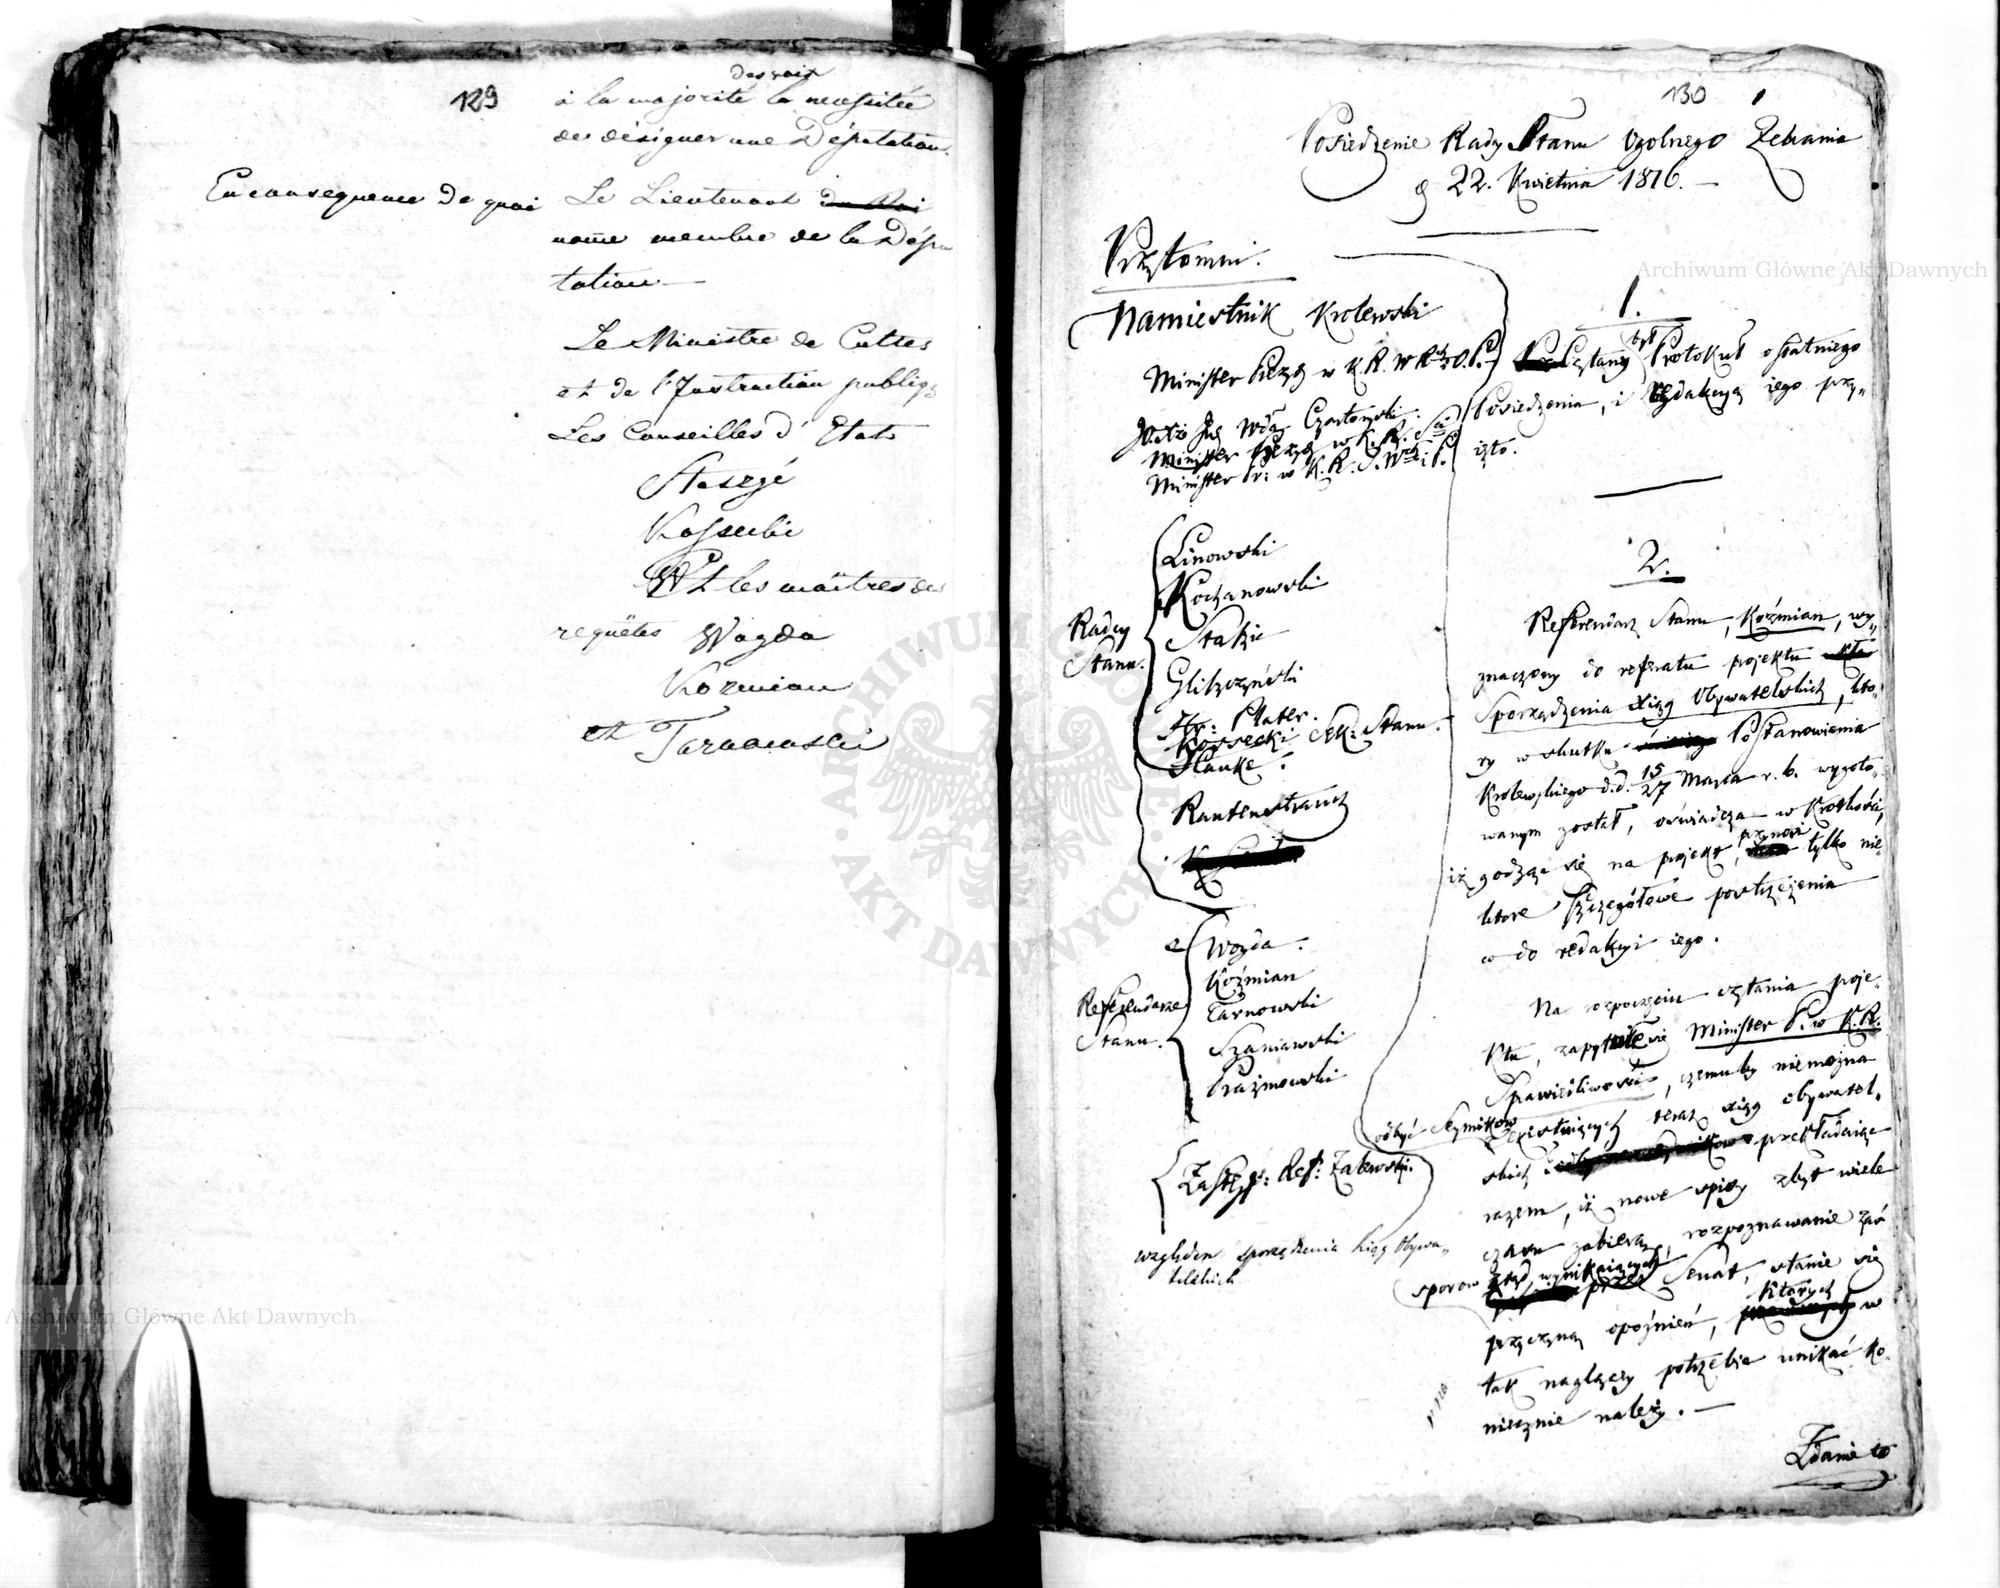 129
des voix
à la majorité la necessitée
de désigner une Députation.
En consequence de quoi Le Lieutenant du Roi
nome membre de la Dépu
tation —
Le Ministre de Cultes
et de l'Instruction publiq;
Les Conseilles d'Etat
Staszyé
Kossecki
Et les maîtres des
requêtes Woyda
Kozmian
et Tarnowski
130
Posiedzenie Rady Stanu Ogolnego Zebrania
22. Kwietnia 1816. —
Przytomni.
Namiestnik Krolewski
Minister Prezyd w K. R. W R. i O. P.
Minister Prezyd w K. R.
Minister Pr: w K. R. S. W. i P.
Radcy
Stanu.
Linowski
Kochanowski
Staszic
Gliszczyński
Hr: Plater.
Kossecki Sek: Stanu.
Hauke.
Rautenstrauch
Referendarze
Stanu.
Woyda.
Koźmian
Tarnowski
Szaniawski
Prażmowski
Zastęp: Ref: Zalewski.
względem sporządzenia ksiąg Obywa„
telskich
1.
Czytany był Protokuł ostatniego
Posiedzenia, i redakcyą iego przy„
ięto.
2.
Referendarz Stanu, Koźmian, wy„
znaczony do referatu projektu
Sporządzenia xiąg Obywatelskich, kto„
ry w skutku Postanowienia
Krolewskiego d.d. 15/27 Marca r. b. wygoto„
wanym został, oświadcza w krotkości,
iż godząc się na projekt, przynosi tylko nie„
ktore szczegółowe postrzeżenia
co do redakcyi iego.
Na rozpoczęciu czytania proje„
ktu, zapytał się Minister P. w K. R.
Sprawiedliwości, czemuby niemożna
odbyć Seymikow z exystuiących teraz xiąg obywatel„
skich przekładaiąc
razem, iż nowe spisy zbyt wiele
czasu zabierą, rozpoznawanie zaś
sporow ztąd wynikaiących przez Senat, stanie się
przyczyną opoźnień, których w
tak naglącey potrzebie unikać ko„
niecznie należy. —
Zdanie to
Archiwum Główne Akt Dawnych
Archiwum Główne Akt Dawnych
ARCHIWUM GŁÓWNE
AKT DAWNYCH